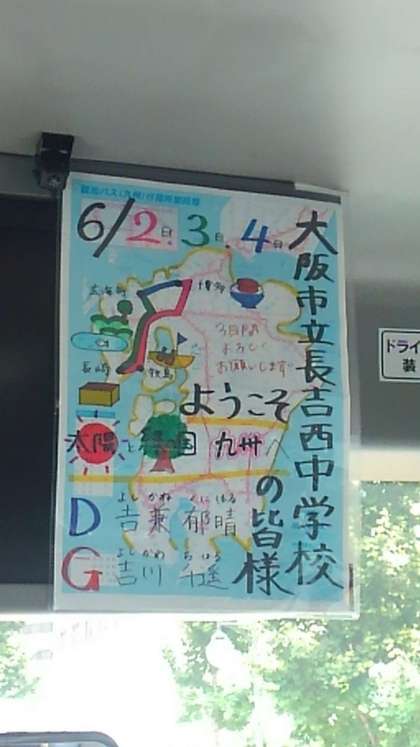 6/2日.3日.4日
大阪市立長吉西中学校
の皆様
博多
3日間
よろしく
お願いします
長崎
ようこそ
太陽と緑の国 九州へ
D 吉兼 郁晴
よし かね くに はる
G 吉川 千遥
よし かわ ち はる
ドライ
装